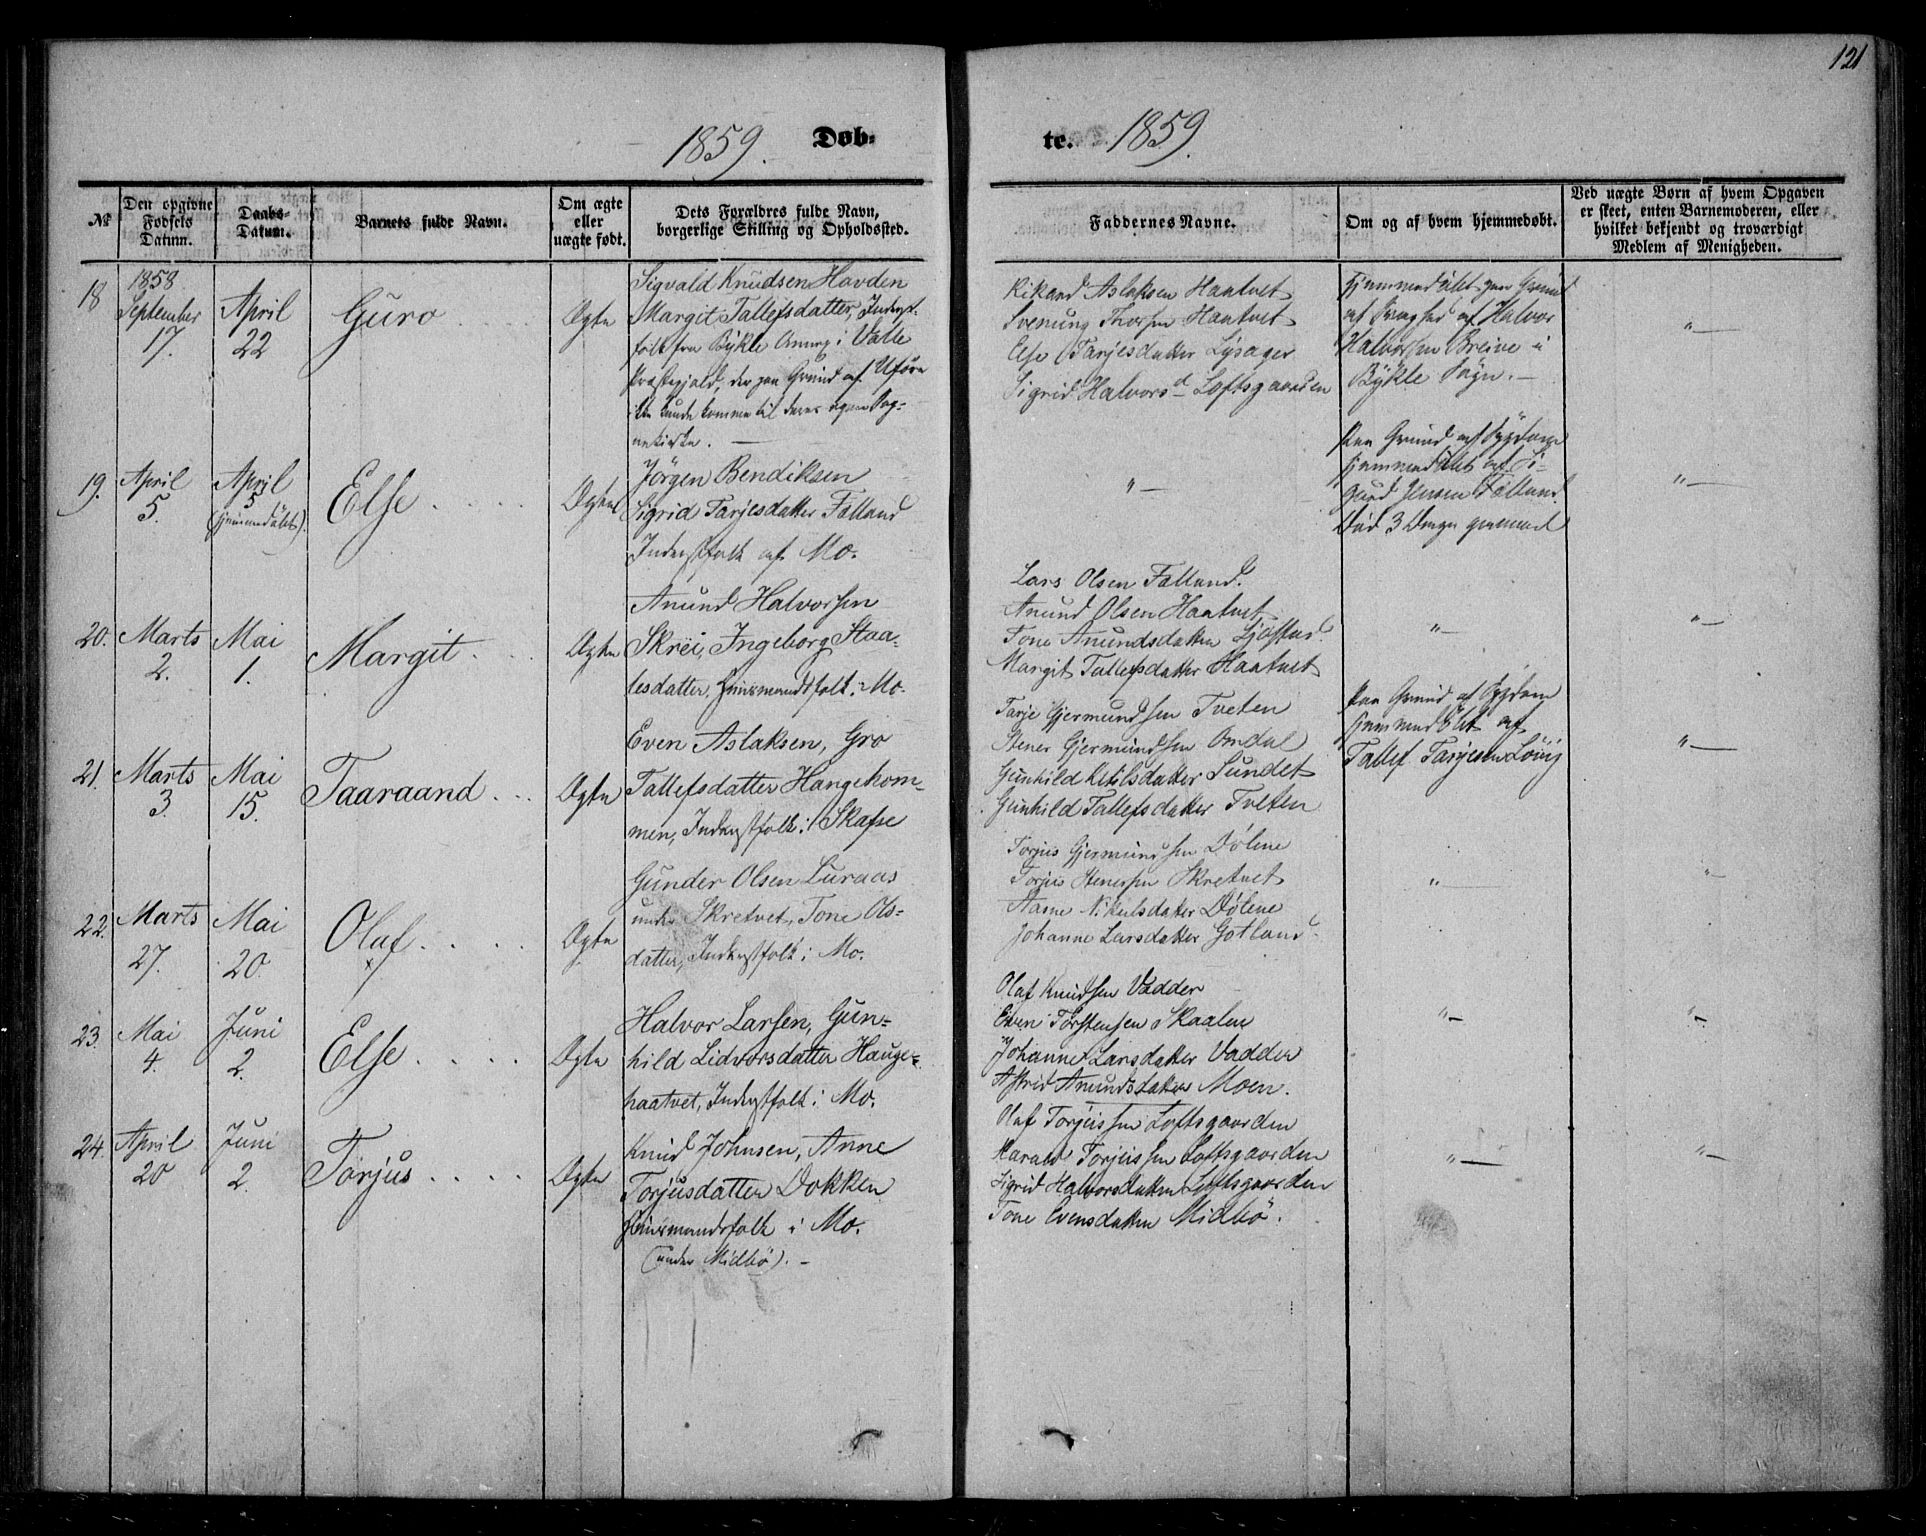 121
1859. Døb-
te. 1859.
№
Den opgivne Fødsels Datum.
Daabs-Datum.
Barnets fulde Navn.
Om ægte eller uægte født.
Dets Forældres fulde Navn, borgerlige Stilling og Opholdssted.
Faddernes Navne.
Om og af hvem hjemmedøbt.
Ved uægte Børn af hvem Opgaven er skeet, enten Barnemoderen, eller hvilket bekjendt og troværdigt Medlem af Menigheden.
18
1858
September
17.
April
22
Guro
Ægte
Sigvald Knudsen Hovden
Margit Tallefsdatter, Inderst-
folk fra Bykle Annex i Valle
Præstegjald, der paa Grund af Uføre
ikke kunde komme til deres egen Sog-
nekirke.
Rikard Aslaksen Haatvet
Svenung Thorsen Haatvet
Else Tarjesdatter Lysager
Sigrid Halvorsd Loftsgaarden
Hjemmedøbt paa Grund
af Svaghed af Halvor
Halvorsen Breive i
Bykle Sogn.
"—
19.
April
5.
April
5
(hjemmedøbt).
Else
Ægte
Jørgen Bendiksen
Sigrid Tarjesdatter Falland
Inderstfolk af Mo.
"—
Paa Grund af Sygdom
hjemmedøbt af Si-
gurd Jensen Falland.
Død 3 Dage gammel
"—
20.
Marts
2.
Mai
1.
Margit
Ægte
Anund Halvorsen
Skrei, Ingeborg Staa-
lesdatter, Huusmandsfolk i Mo.
Lars Olsen Falland.
Anund Olsen Haatvet
Tone Anundsdatter
Margit Tallefsdatter Haatvet
"—
"—
21.
Marts
3.
Mai
15.
Taaraand
Ægte
Even Aslaksen, Gro
Tallefsdatter Hangekom-
men, Inderstfolk i Skafse
Tarje Gjermundsen Tveten
Stener Gjermundsen Omdal
Gunhild Ketilsdatter Sundet
Gunhild Tallefsdatter Tveten
Paa Grund af Sygdom
hjemmedøbt af
Tallef Tarjesen
"—
22.
Marts
27.
Mai
20.
Olaf
x
Ægte
Gunder Olsen Luraas
under Skretvet, Tone Ols-
datter, Inderstfolk i Mo.
Torjus Gjermundsen Dølene
Torjus Stenersen Skretvet
Aasne Nikulsdatter Dølene
Johanne Larsdatter Gotland.
"—
"—
23.
Mai
4.
Juni
2.
Else
Ægte
Halvor Larsen, Gun-
hild Lidvorsdatter Hauge-
haatvet, Inderstfolk i Mo.
Olaf Knudsen Vadder
Even Torstensen Skaalen
Johanne Larsdatter Vadder
Astrid Anundsdatter Moen.
"—
"—
24.
April
20
Juni
2.
Torjus
Ægte
Knud Johnsen, Anne
Torjusdatter Dokken
Huusmandsfolk i Mo.
(under Midbö).
Olaf Torjussen Loftsgaarden
Harald Torjussen Loftsgaarden
Sigrid Halvorsdatter Loftsgaarden
Tone Evensdatter Midbö.
"—
"—